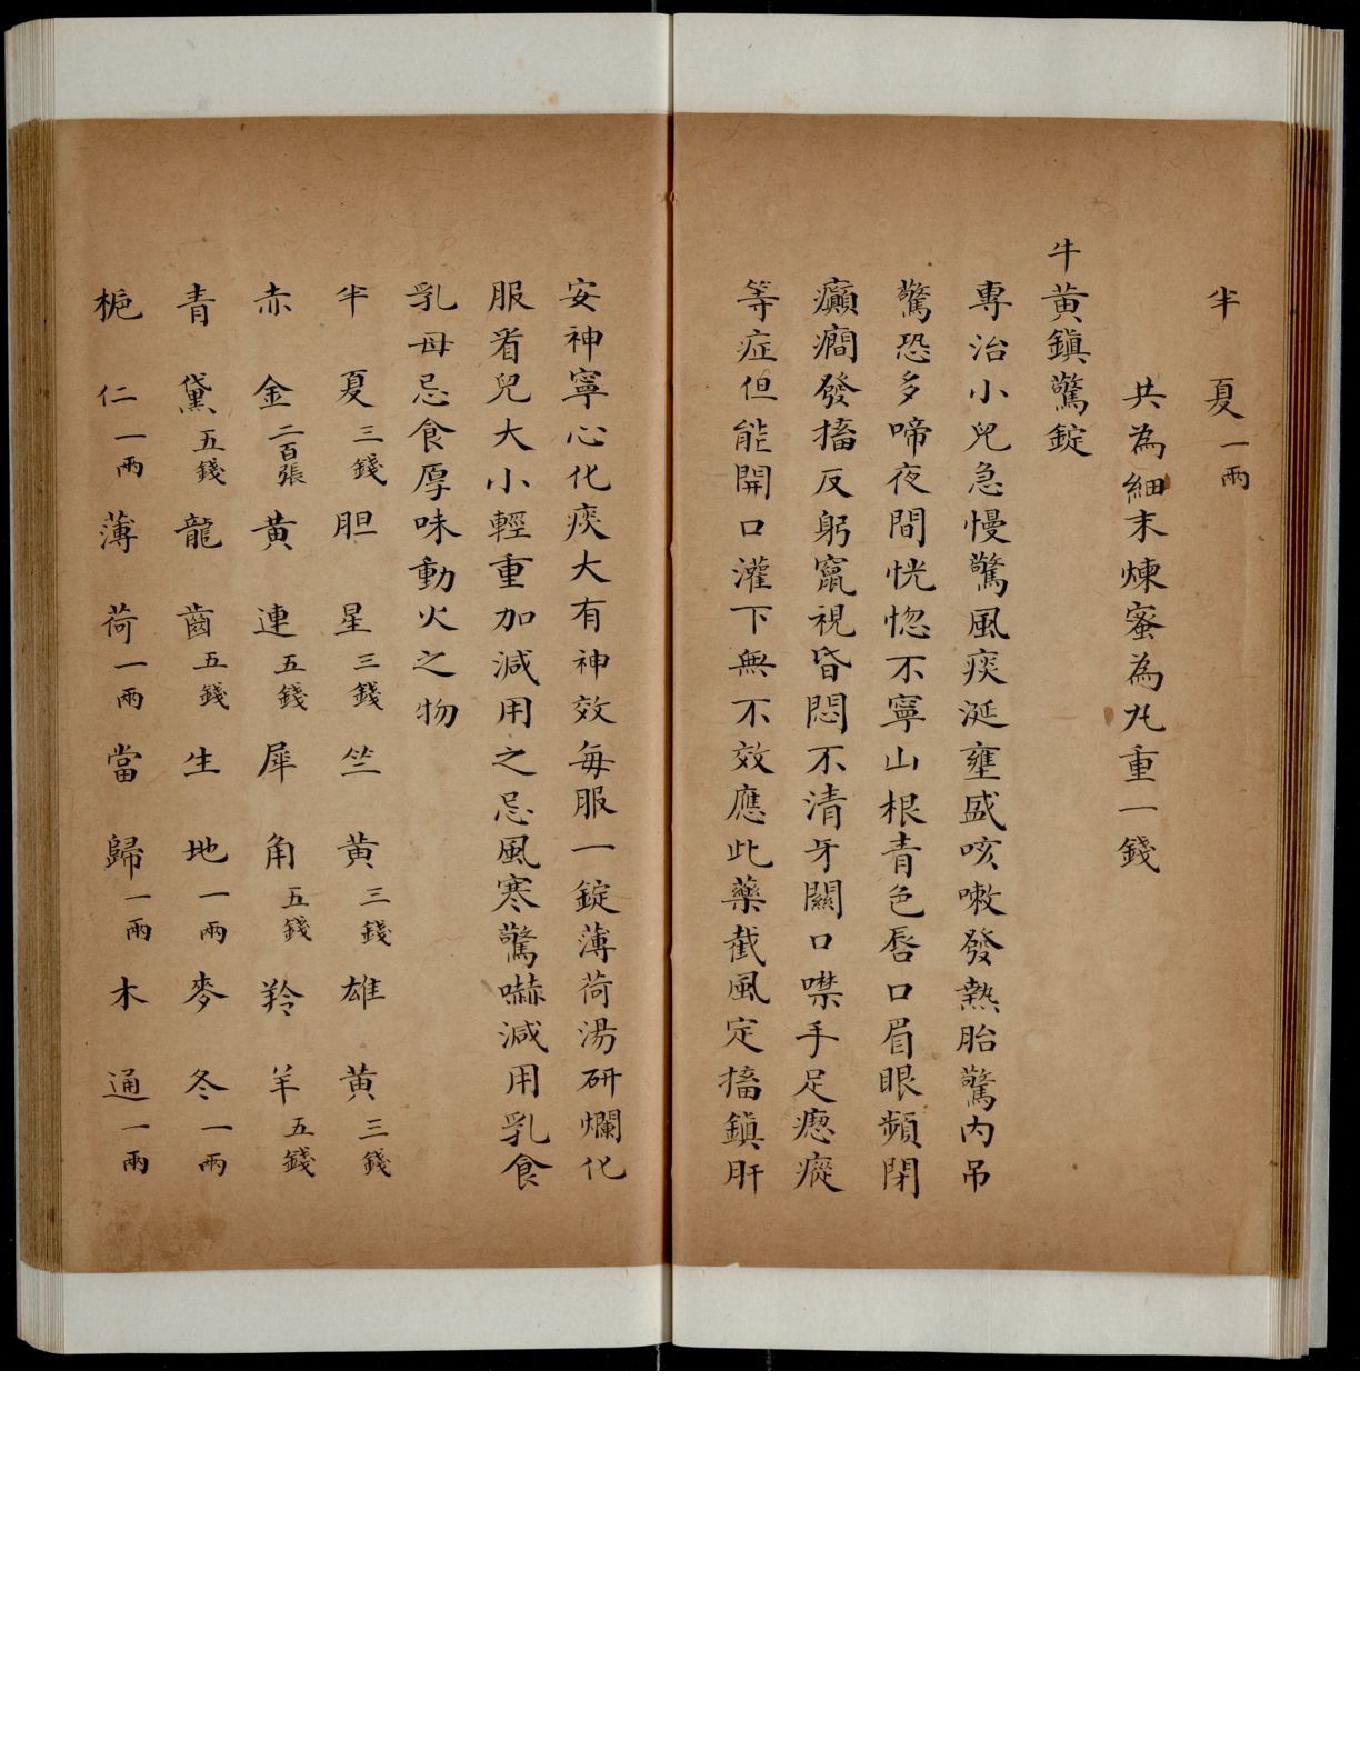 半夏一兩
共為細末煉蜜為丸重一錢
牛黃鎮驚錠
專治小兒急慢驚風痰涎壅盛咳嗽發熱胎驚內吊
驚恐多啼夜間恍惚不寧山根青色唇口眉眼頻閉
癲癇發搐反躬竄視昏悶不清牙關口噤手足瘛瘲
等症但能開口灌下無不效應此藥截風定搐鎮肝
安神寧心化痰大有神效每服一錠薄荷湯研爛化
服看兒大小輕重加減用之忌風寒驚嚇減用乳食
乳母忌食厚味動火之物
半夏三錢胆星三錢竺黃三錢雄黃三錢
赤金二百張黃連五錢犀角五錢羚羊五錢
青黛五錢龍齒五錢生地一兩麥冬一兩
梔仁一兩薄荷一兩當歸一兩木通一兩